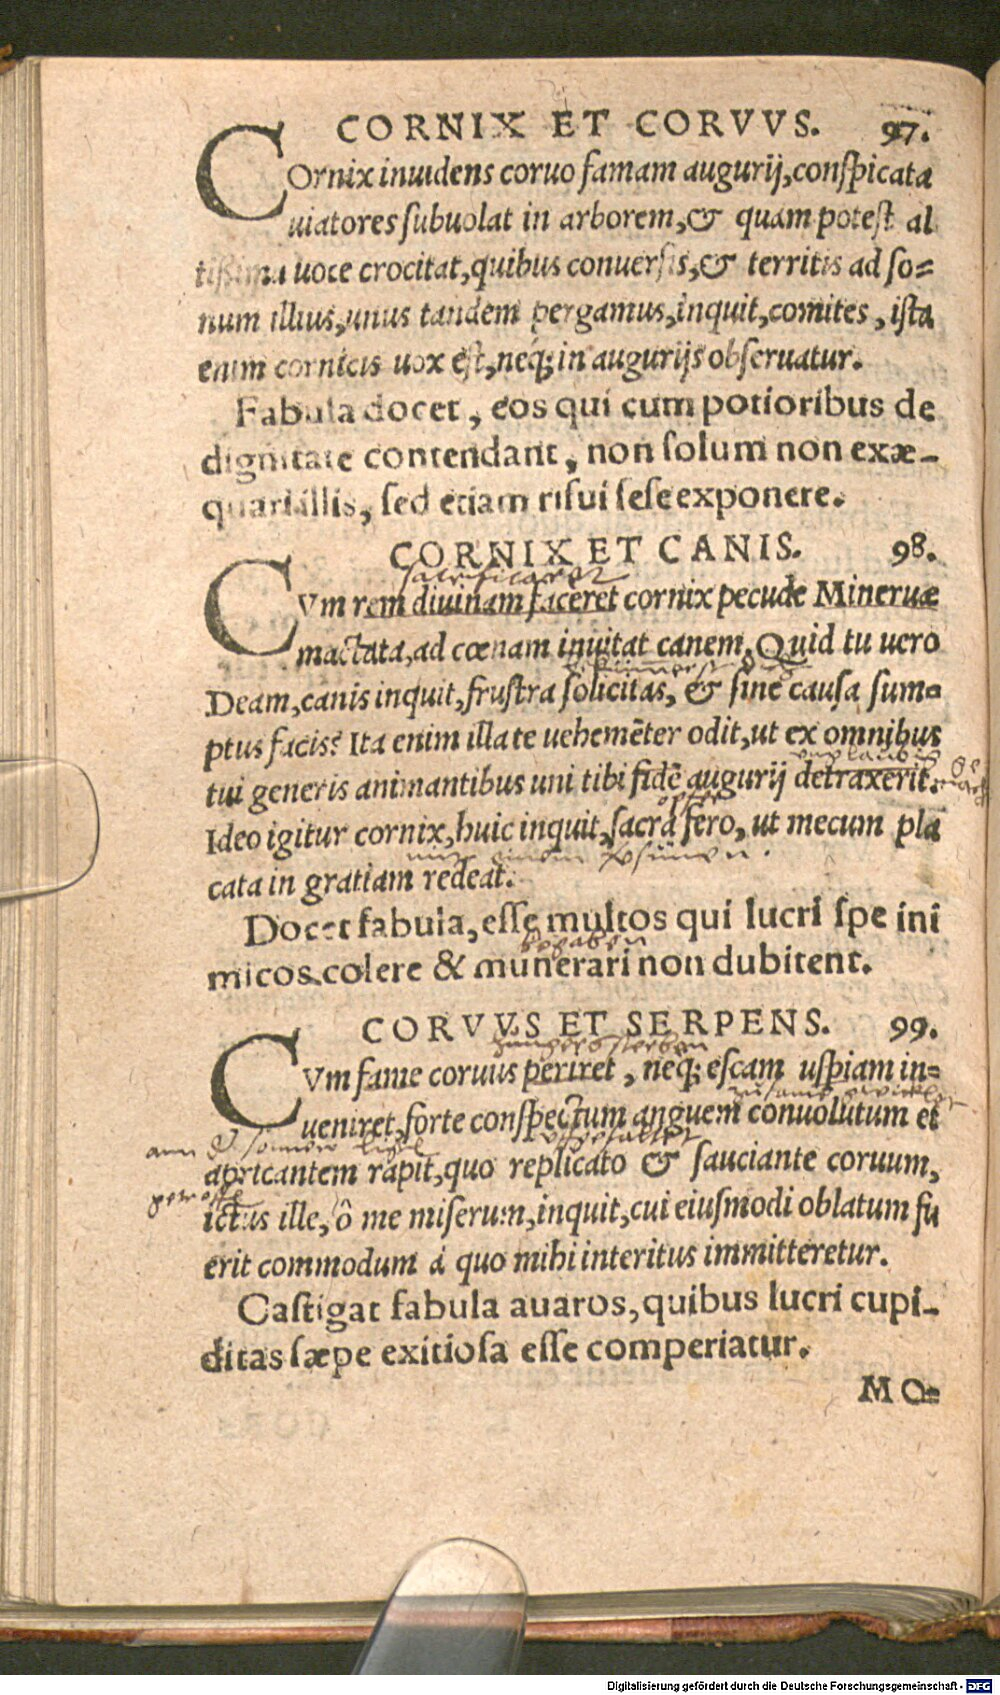 CORNIX ET CORVVS. 97.
COrnix inuidens coruo famam augurij, conspicata
uiatores subuolat in arborem, & quam potest al
tissima uoce crocitat, quibus conuersis, & territis ad so=
num illius, unus tandem pergamus, inquit, comites, ista
enim cornicis uox est, neq; in augurijs obseruatur.
Fabula docet, eos qui cum potioribus de
dignitate contendant, non solum non exæ-
quari illis, sed etiam risui sese exponere.
CORNIX ET CANIS. 98.
sacrificaret
CVm rem diuinam faceret cornix pecude Mineruæ
mactata, ad cœnam inuitat canem. Quid tu uero
Deam, canis inquit, frustra solicitas, & sine causa sum=
ptus facis? Ita enim illa te uehemēter odit, ut ex omnibus
tui generis animantibus uni tibi fidē augurij detraxerit.
Ideo igitur cornix, huic inquit, sacra fero, ut mecum pla
cata in gratiam redeat.
Docet fabula, esse multos qui lucri spe ini
begaben
micos colere & munerari non dubitent.
CORVVS ET SERPENS. 99.
hungers sterben
CVm fame coruus periret, neq; escam uspiam in=
ueniret, forte conspectum anguem conuolutum et
apricantem rapit, quo replicato & sauciante coruum,
ictus ille, ô me miserum, inquit, cui eiusmodi oblatum fu
erit commodum à quo mihi interitus immitteretur.
Castigat fabula auaros, quibus lucri cupi-
ditas sæpe exitiosa esse comperiatur.
MO=
Digitalisierung gefördert durch die Deutsche Forschungsgemeinschaft - DFG